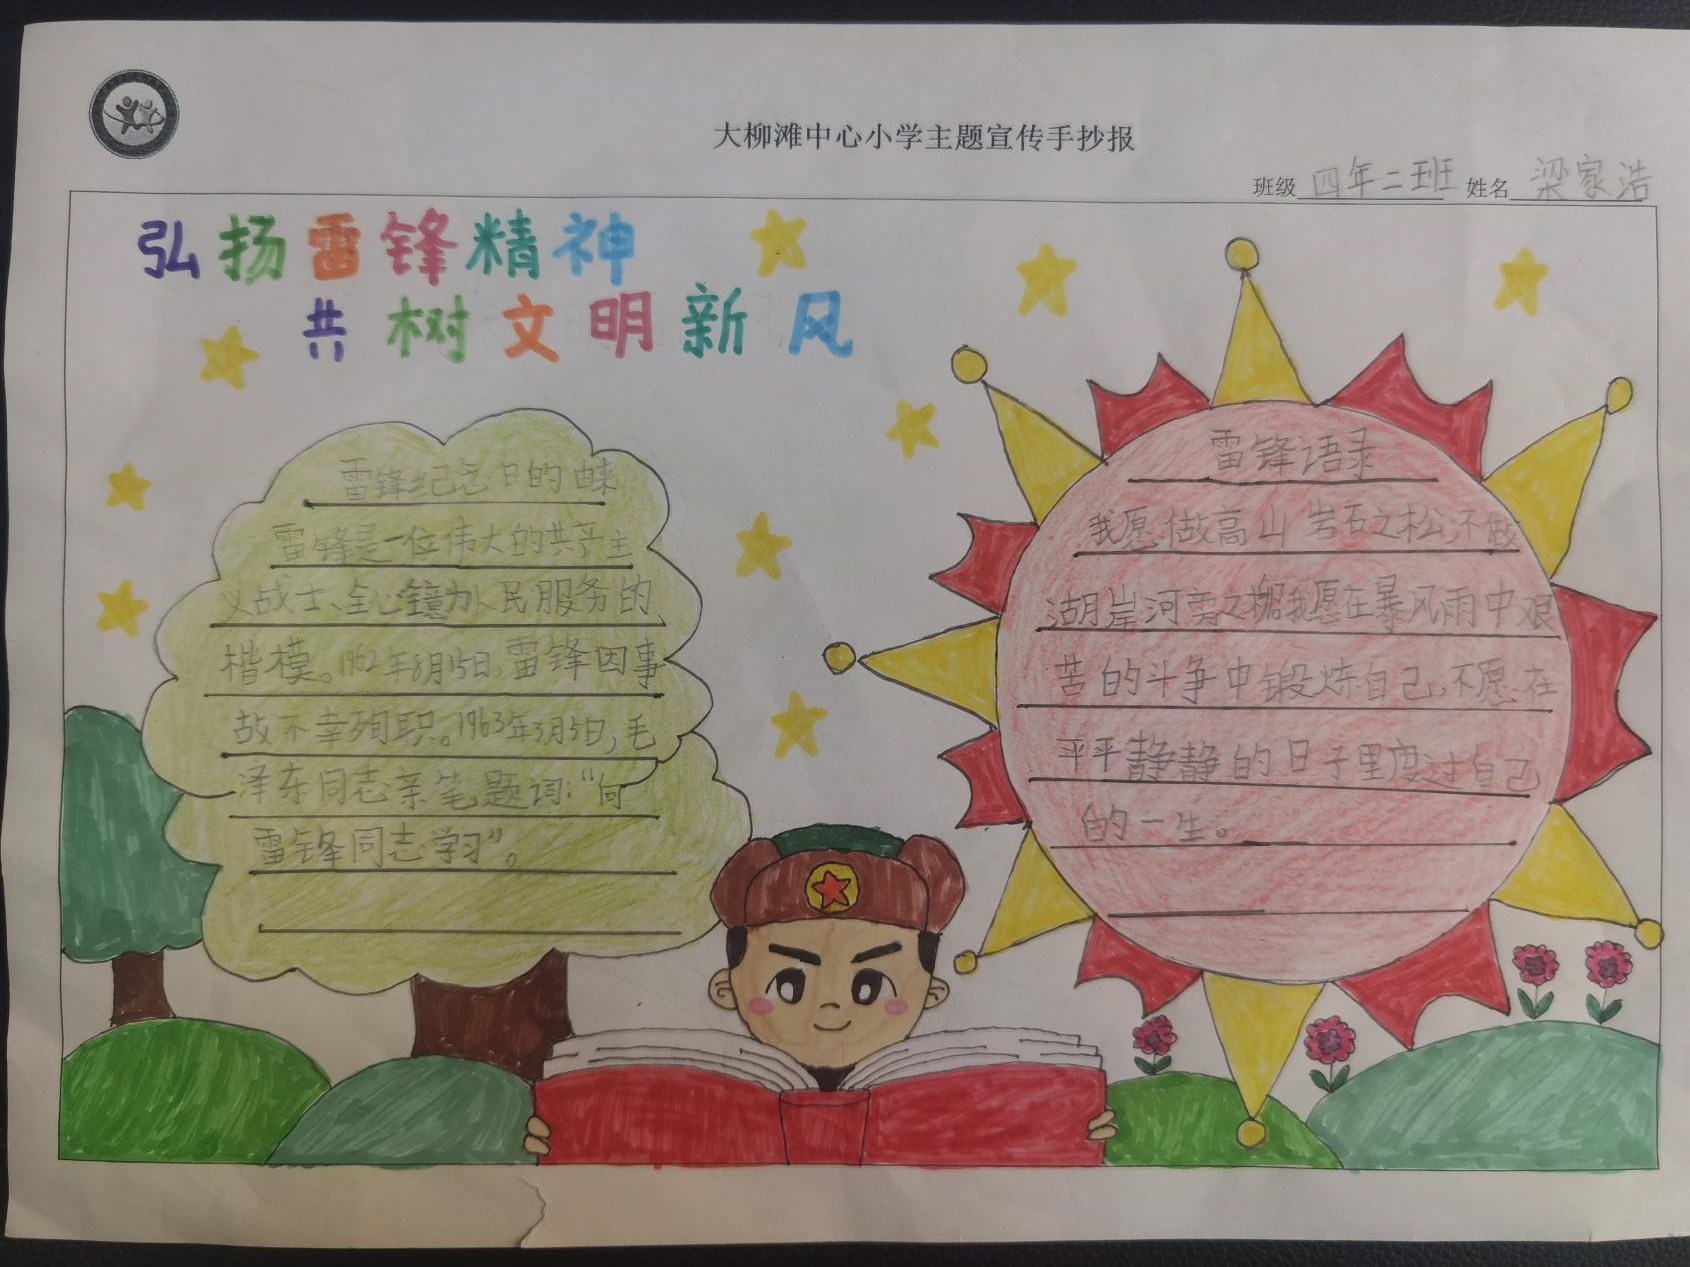 大柳滩中心小学主题宣传手抄报
班级 四年二班 姓名 梁家浩
弘扬雷锋精神
共树文明新风
雷锋纪念日的由来
雷锋是一位伟大的共产主
义战士、全心全意为人民服务的
楷模。1962年8月15日,雷锋因事
故不幸殉职。1963年3月5日,毛
泽东同志亲笔题词:“向
雷锋同志学习”。
雷锋语录
我愿做高山岩石之松,不做
湖岸河旁之柳,我愿在暴风雨中艰
苦的斗争中锻炼自己,不愿在
平平静静的日子里度过自己
的一生。